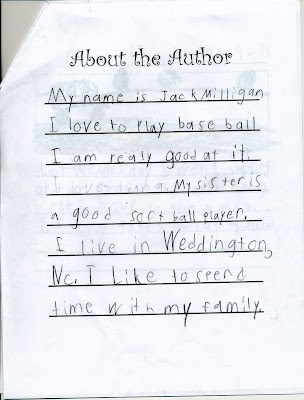 About the Author
My name is Jack Milligan
I love to play base ball
I am realy good at it.
My sister is
a good soft ball player.
I live in Weddington,
Nc. I Like to spend
time with my family.